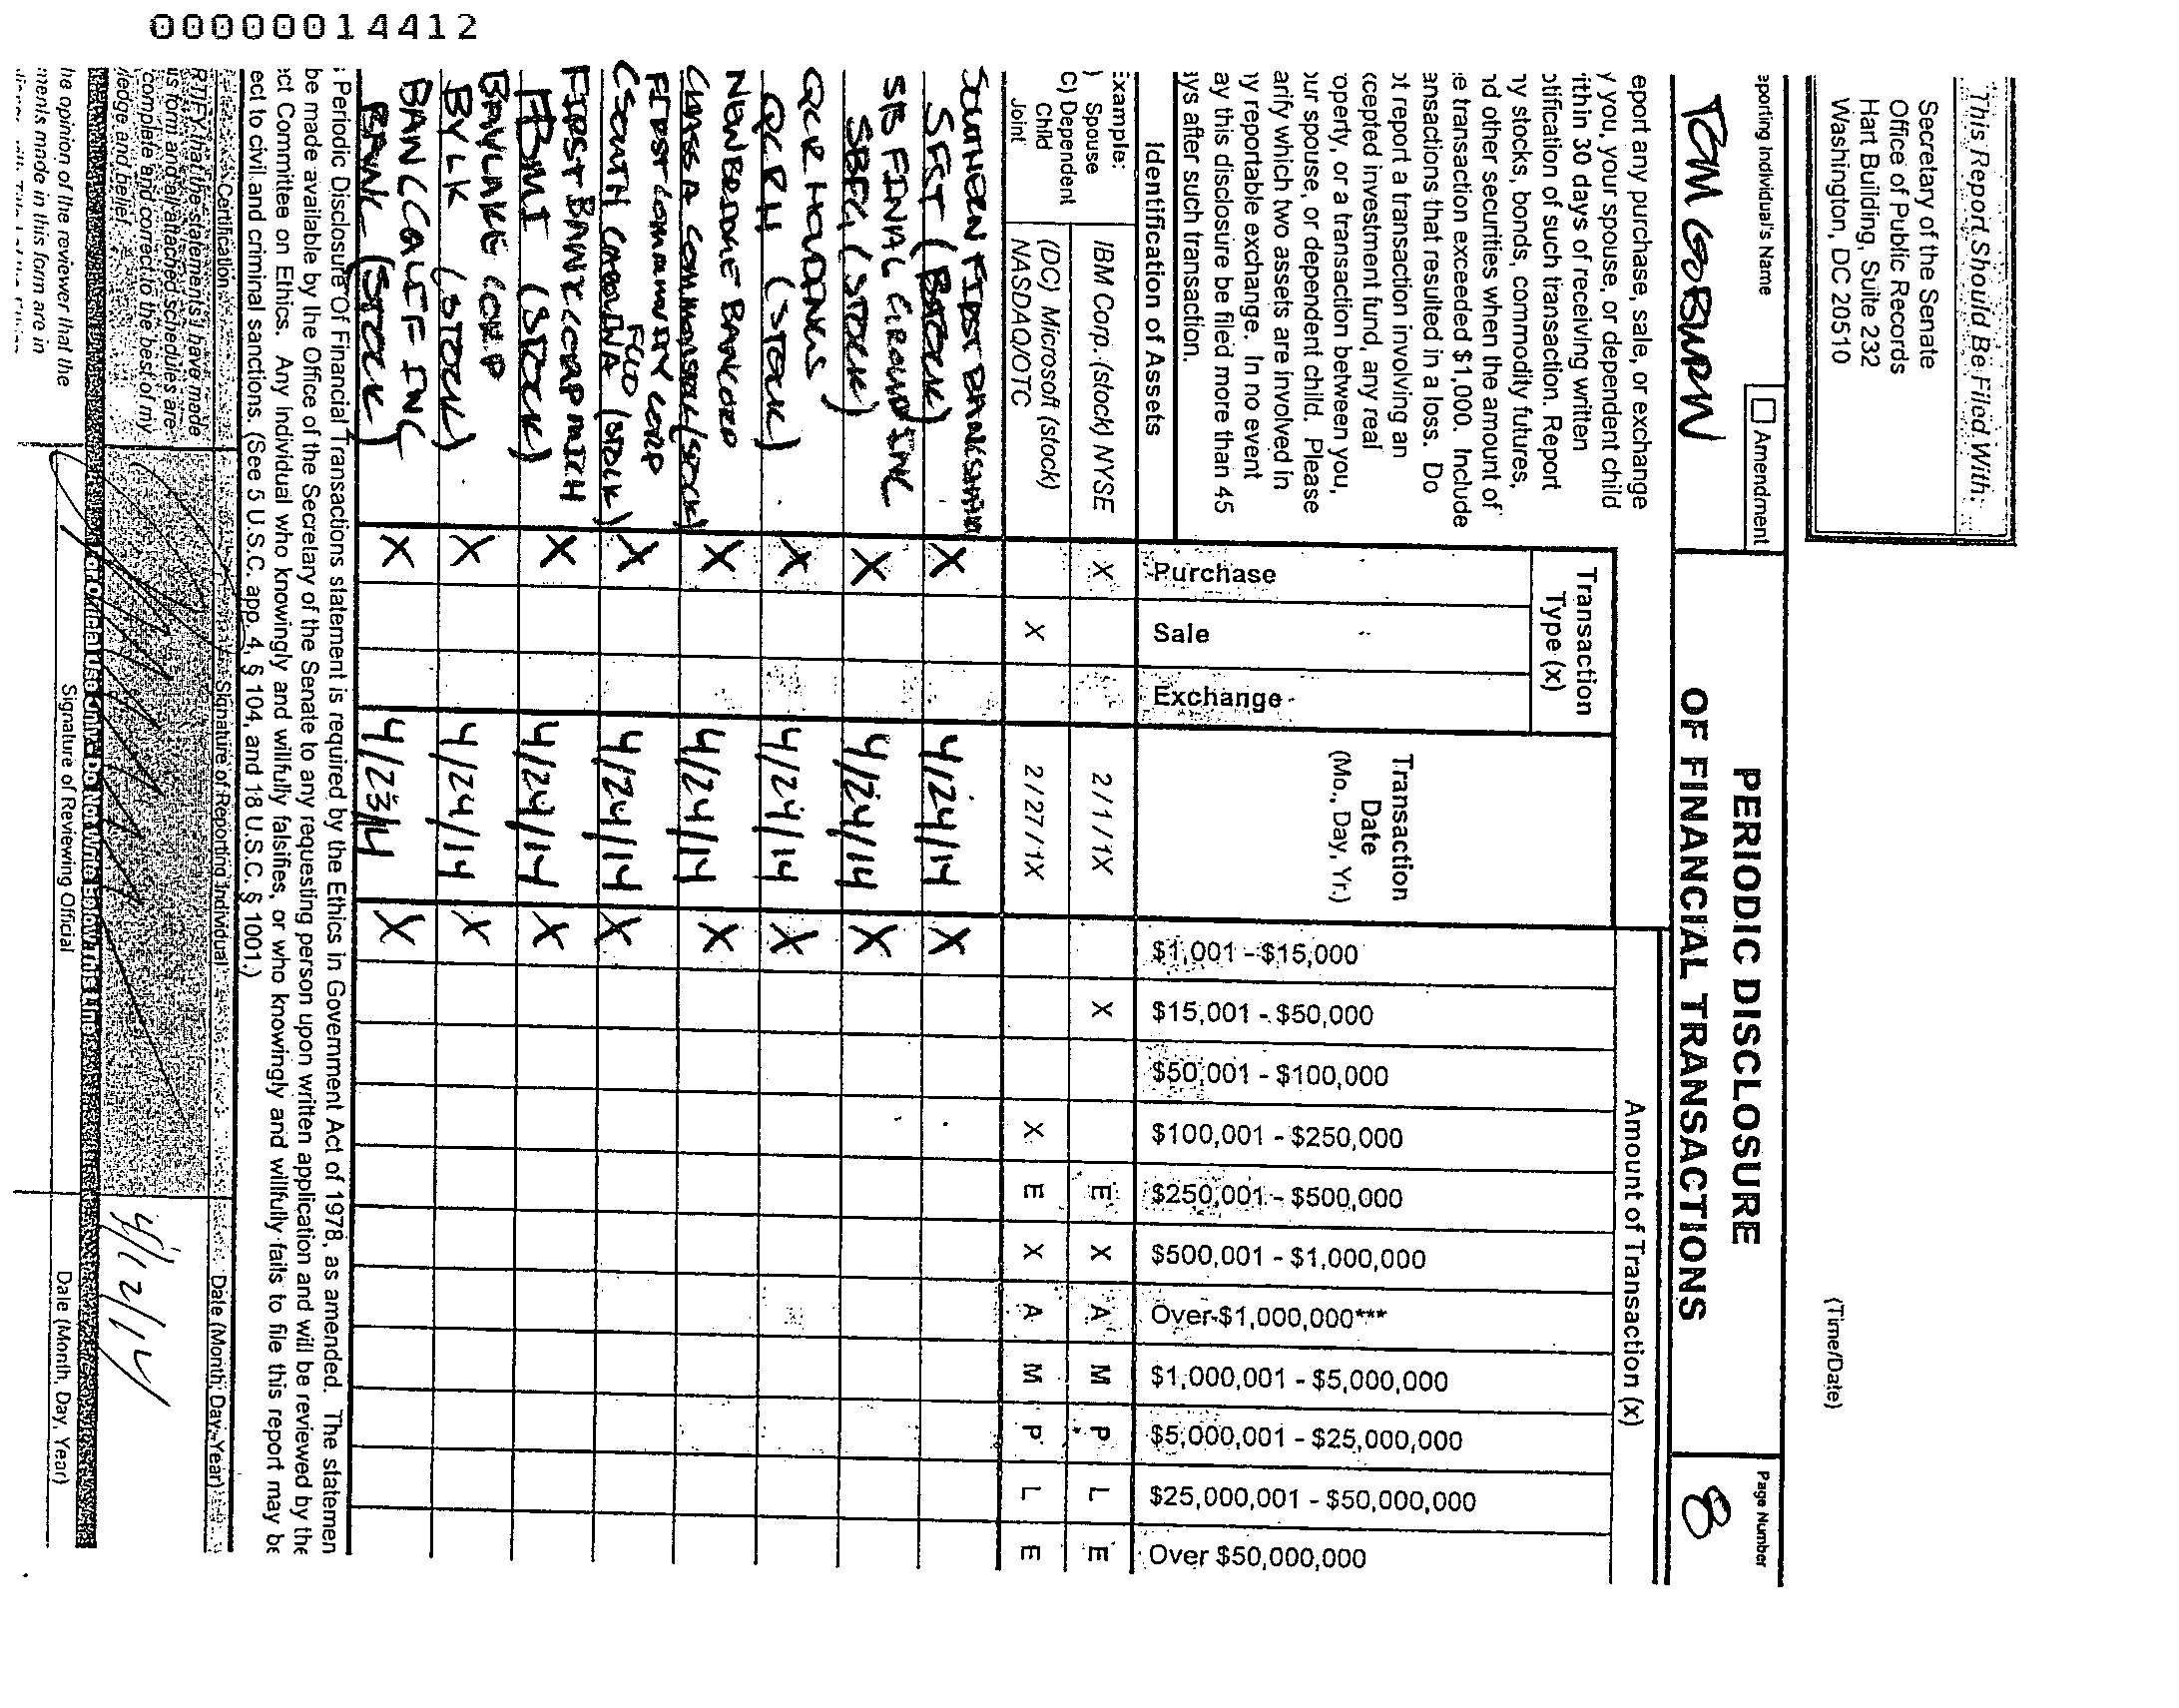 00000014412
This Report Should Be Filed With:
Secretary of the Senate
Office of Public Records
Hart Building, Suite 232
Washington, DC 20510
(Time/Date)
eporting Individual's Name
Amendment
TOM COBURN
PERIODIC DISCLOSURE
OF FINANCIAL TRANSACTIONS
Page Number
8
eport any purchase, sale, or exchange
y you, your spouse, or dependent child
ithin 30 days of receiving written
otification of such transaction. Report
ny stocks, bonds, commodity futures,
nd other securities when the amount of
e transaction exceeded $1,000. Include
ansactions that resulted in a loss. Do
ot report a transaction involving an
xcepted investment fund, any real
operty, or a transaction between you,
our spouse, or dependent child. Please
arify which two assets are involved in
ny reportable exchange. In no event
ay this disclosure be filed more than 45
ays after such transaction.
Identification of Assets
Transaction
Type (x)
Purchase
Sale
Exchange
Transaction
Date
(Mo., Day, Yr.)
Amount of Transaction (x)
$1,001 - $15,000
$15,001 - $50,000
$50,001 - $100,000
$100,001 - $250,000
$250,001 - $500,000
$500,001 - $1,000,000
Over $1,000,000***
$1,000,001 - $5,000,000
$5,000,001 - $25,000,000
$25,000,001 - $50,000,000
Over $50,000,000
Example:
) Spouse
C) Dependent
Child
Joint
IBM Corp. (stock) NYSE X 2/1/1X X E X A M P L E
(DC) Microsoft (stock)
NASDAQ/OTC X 2/27/1X X E X A M P L E
SOUTHERN FIRST
SFST X 4/24/14 X
SB FINAL GROUP INC
SBFG (STOCK) X 4/24/14 X
QCR HOLDINGS
QCRH (STOCK) X 4/24/14 X
NEWBRIDGE BANCORP
CLASS A COMMON (STOCK) X 4/24/14 X
FIRST COMMUNITY CORP
(SOUTH CAROLINA FCCO (STOCK) X 4/24/14 X
FIRST BANK CORP MICH
FBMI (STOCK) X 4/24/14 X
BAYLAKE CORP
BYLK (STOCK) X 4/24/14 X
BANC CALIF INC
BANK (STOCK) X 4/23/14 X
Periodic Disclosure Of Financial Transactions statement is required by the Ethics in Government Act of 1978, as amended. The statemen
be made available by the Office of the Secretary of the Senate to any requesting person upon written application and will be reviewed by the
ct Committee on Ethics. Any individual who knowingly and willfully falsifies, or who knowingly and willfully fails to file this report may be
ect to civil and criminal sanctions. (See 5 U.S.C. app. 4, § 104, and 18 U.S.C. § 1001.)
Certification
Signature of Reporting Individual
Date (Month, Day, Year)
RTIFY that the statements I have made
is form and all attached schedules are
complete and correct to the best of my
ledge and belief.
4/12/14
For Official Use Only - Do Not Write Below This Line
he opinion of the reviewer that the
ments made in this form are in
Signature of Reviewing Official
Date (Month, Day, Year)